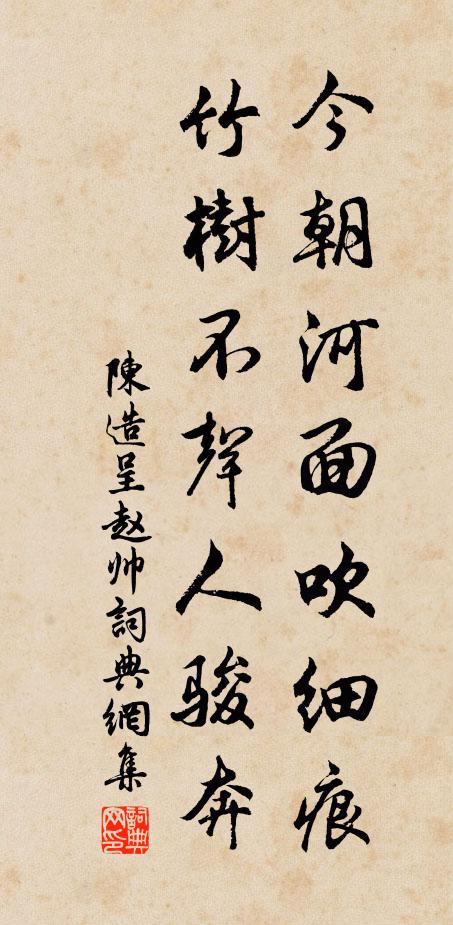 今朝河面吹细痕
竹樹不聲人骏奔
陳造呈赵帅詞典網集
詞典网印